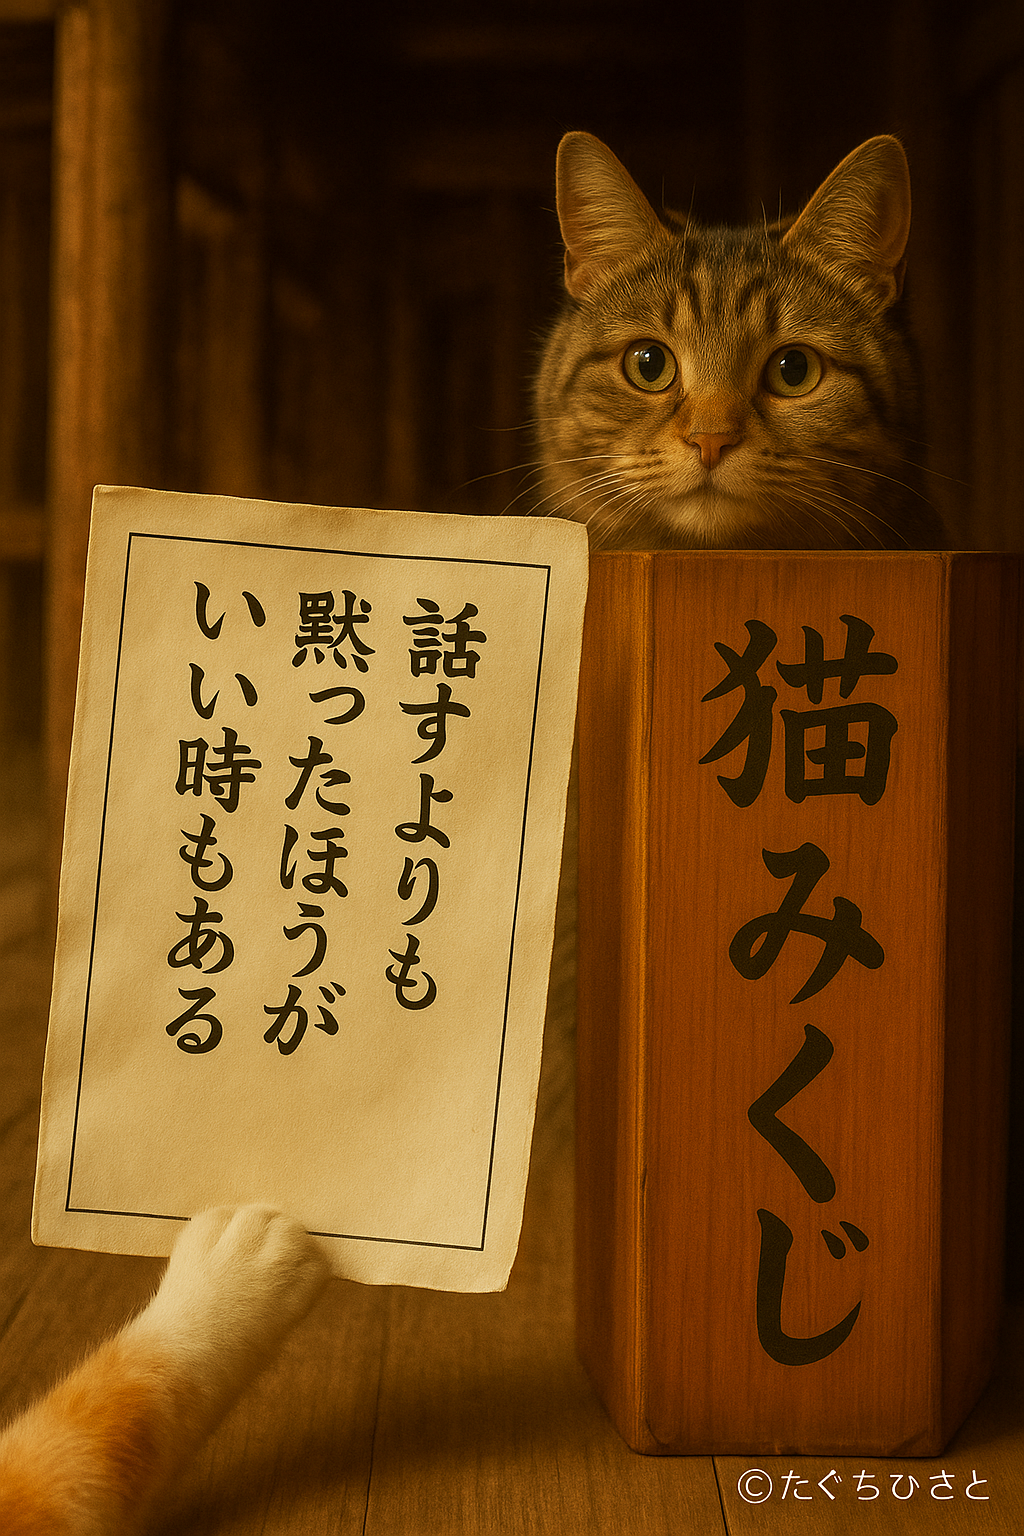 話すよりも
黙ったほうが
いい時もある
猫みくじ
©たぐちひさと